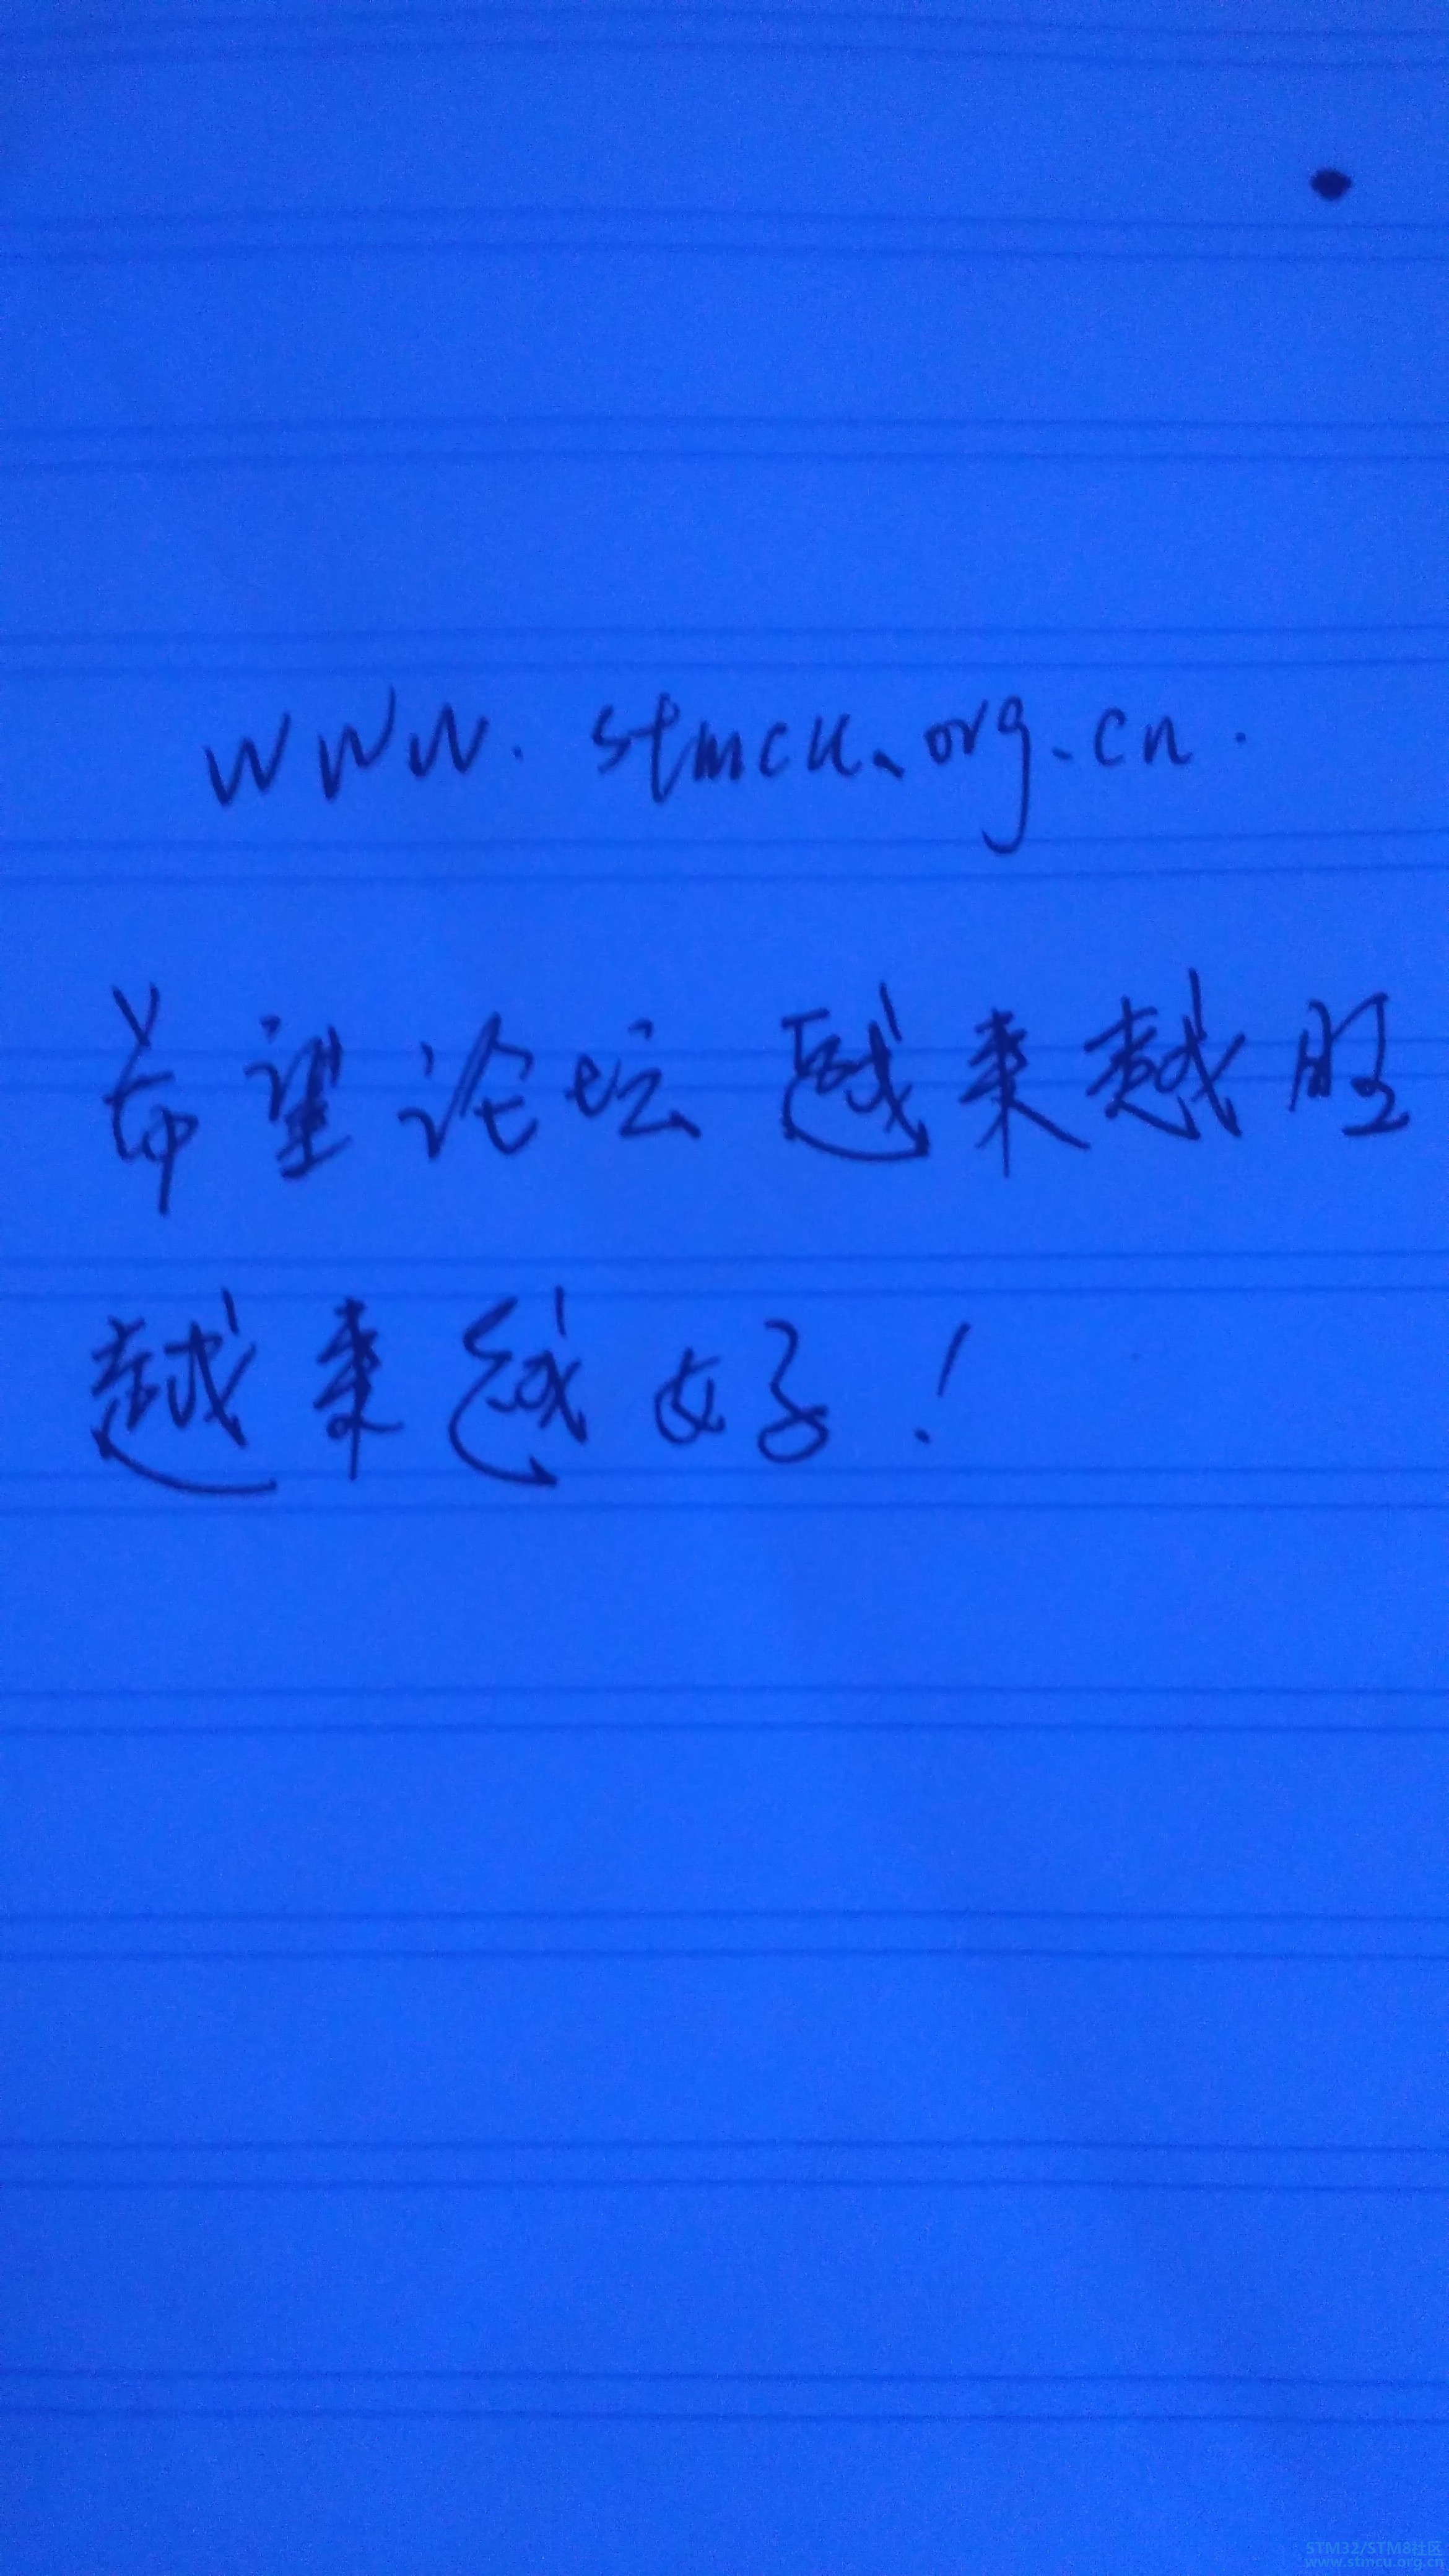 www.stmcu.org.cn.
希望论坛越来越旺
越来越好!
STM32/STM8社区
www.stmcu.org.cn